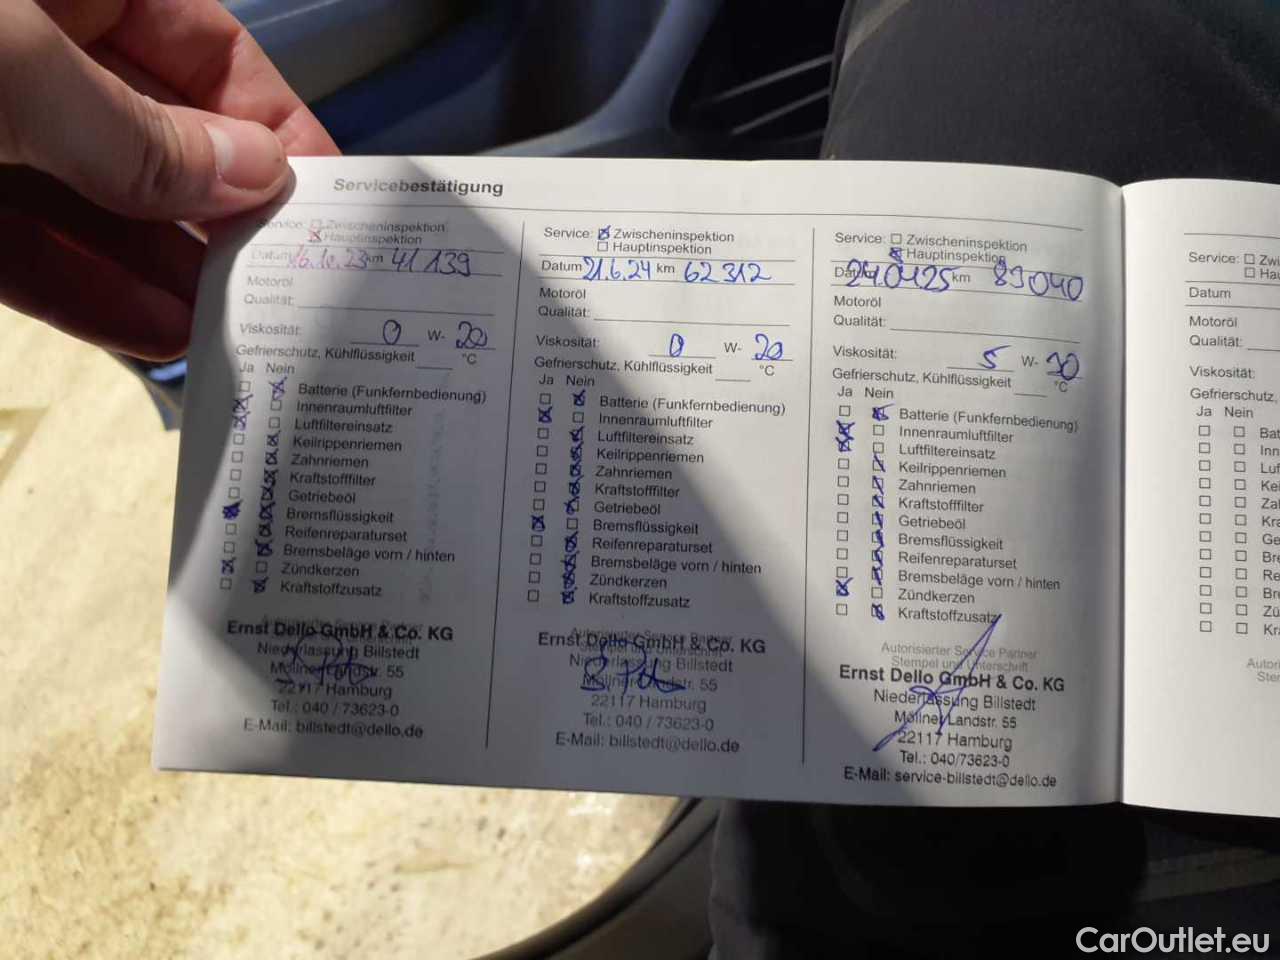 Servicebestätigung
Service: ☐ Zwischeninspektion
☒ Hauptinspektion
Datum 16.10.23 km 41 139
Motoröl
Qualität:
Viskosität: 0 W- 20
Gefrierschutz, Kühlflüssigkeit °C
Ja Nein
Batterie (Funkfernbedienung)
Innenraumluftfilter
Luftfiltereinsatz
Keilrippenriemen
Zahnriemen
Kraftstofffilter
Getriebeöl
Bremsflüssigkeit
Reifenreparaturset
Bremsbeläge vorn / hinten
Zündkerzen
Kraftstoffzusatz
Autorisierter Service Partner
Ernst Dello GmbH & Co. KG
Niederlassung Billstedt
Möllner Landstr. 55
22117 Hamburg
Tel.: 040 / 73623-0
E-Mail: billstedt@dello.de
Service: ☒ Zwischeninspektion
☐ Hauptinspektion
Datum 21.6.24 km 62 312
Motoröl
Qualität:
Viskosität: 0 W- 20
Gefrierschutz, Kühlflüssigkeit °C
Ja Nein
Batterie (Funkfernbedienung)
Innenraumluftfilter
Luftfiltereinsatz
Keilrippenriemen
Zahnriemen
Kraftstofffilter
Getriebeöl
Bremsflüssigkeit
Reifenreparaturset
Bremsbeläge vorn / hinten
Zündkerzen
Kraftstoffzusatz
Autorisierter Service Partner
Ernst Dello GmbH & Co. KG
Stempel und Unterschrift
Niederlassung Billstedt
Möllner Landstr. 55
22117 Hamburg
Tel.: 040 / 73623-0
E-Mail: billstedt@dello.de
Service: ☐ Zwischeninspektion
☒ Hauptinspektion
Datum 240425 km 89040
Motoröl
Qualität:
Viskosität: 5 W- 30
Gefrierschutz, Kühlflüssigkeit °C
Ja Nein
Batterie (Funkfernbedienung)
Innenraumluftfilter
Luftfiltereinsatz
Keilrippenriemen
Zahnriemen
Kraftstofffilter
Getriebeöl
Bremsflüssigkeit
Reifenreparaturset
Bremsbeläge vorn / hinten
Zündkerzen
Kraftstoffzusatz
Autorisierter Service Partner
Stempel und Unterschrift
Ernst Dello GmbH & Co. KG
Niederlassung Billstedt
Möllner Landstr. 55
22117 Hamburg
Tel.: 040/73623-0
E-Mail: service-billstedt@dello.de
Service: ☐ Zwi
☐ Hau
Datum
Motoröl
Qualität:
Viskosität:
Gefrierschutz,
Ja Nein
Bat
Inn
Luf
Kei
Zah
Kra
Get
Bre
Rei
Bre
Zü
Kra
CarOutlet.eu